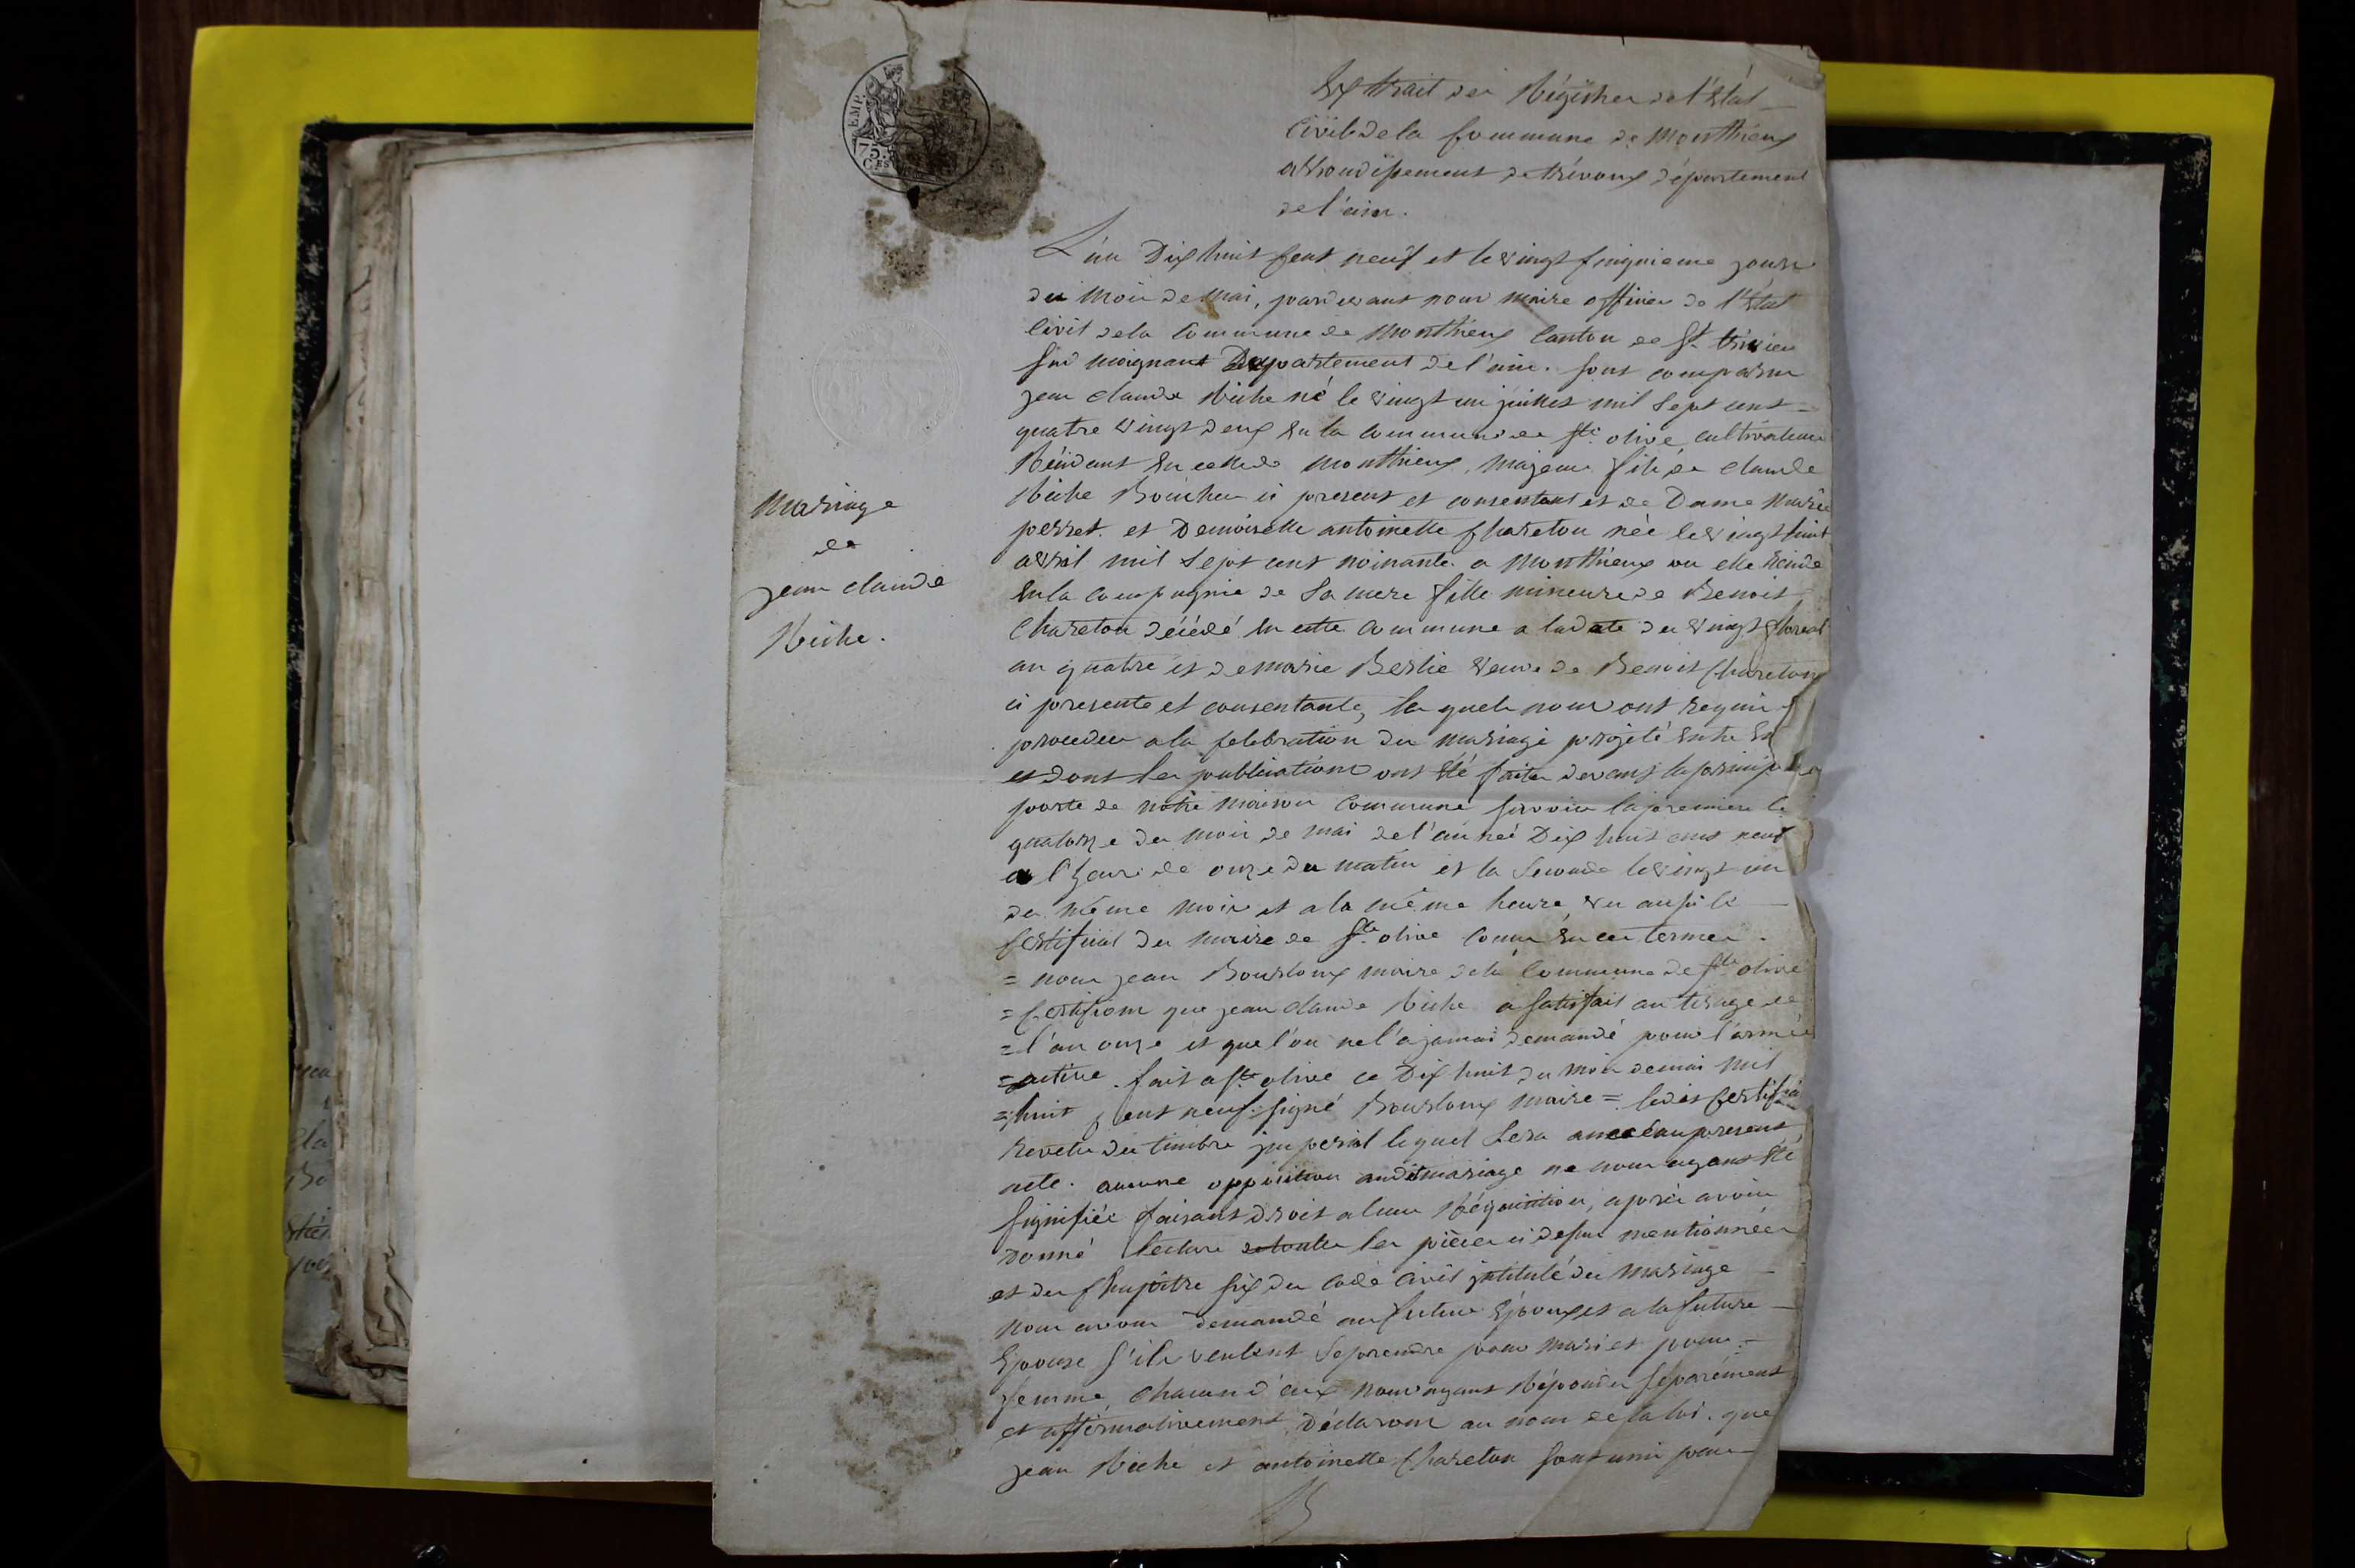 Extrait des Régistres de l'État
Civil de la Commune de Monthieux
arrondissement de trévoux département
de l'ain.
L'an Dix huit Cent neuf et le vingt Cinquieme jour
du Mois de Mai, pardevant nous maire officier de l'État
Civil de la Commune de Monthieux Canton de St. trivier
Sur moignant Département de l'ain. sont comparus
jean claude Riche né le vingt un juillet mil sept cent =
quatre vingt deux En la Commune de Ste. olive cultivateur
Résidant En celle de Monthieux, majeur fils de claude
Riche Boucher ci present et consentant et de Dame Marie
perret. et Demoiselle antoinette Chareton née le vingt huit
avril mil sept cent noinante a Monthieux ou elle réside
En la compagnie de sa mere fille mineure de Benoit
Chareton décédé En cette Commune a la date du vingt floreal
an quatre et de marie Berlie veuve de Benoit Chareton
ci presente et consentante, les quels nous ont requis
proceder a la Celebration du mariage projeté Entre Eux
et dont les publications ont Été faites devant la principale
porte de notre maison Commune savoir la premiere le
quatorze du mois de mai de l'année Dix huit cent neuf
a l'heure de onze du matin et la seconde le vingt un
du même mois et a la même heure, vu aussi le
Certificat du maire de Ste. olive conçu En ces termes.
= nous jean Bourloux maire de la Commune de Ste. olive
= Certifions que jean claude Riche a satisfait au tirage de
= l'an onze et que l'on ne l'a jamais demandé pour l'armée
= active. fait a Ste. olive ce Dix huit du mois de mai mil
= huit Cent neuf. signé Bourloux maire = ledit Certificat
Revetu du timbre imperial lequel sera annexé au present
acte. aucune opposition audit mariage ne nous ayant Été
signifiée faisant droit a leur Réquisition, après avoir
donné lecture de toutes les pièces ci dessus mentionnées
et du Chapitre six du Code Civil intitulé du Mariage
nous avons demandé au futur Epoux et a la future
Epouse s'ils veulent se prendre pour mari et pour =
femme, chacun d'eux nous ayant Répondu séparément
et affirmativement, Déclarons au nom de la loi. que
jean Riche et antoinette Chareton sont unis par
Mariage
de
jean claude
Riche.
EMP.
75
C.ES